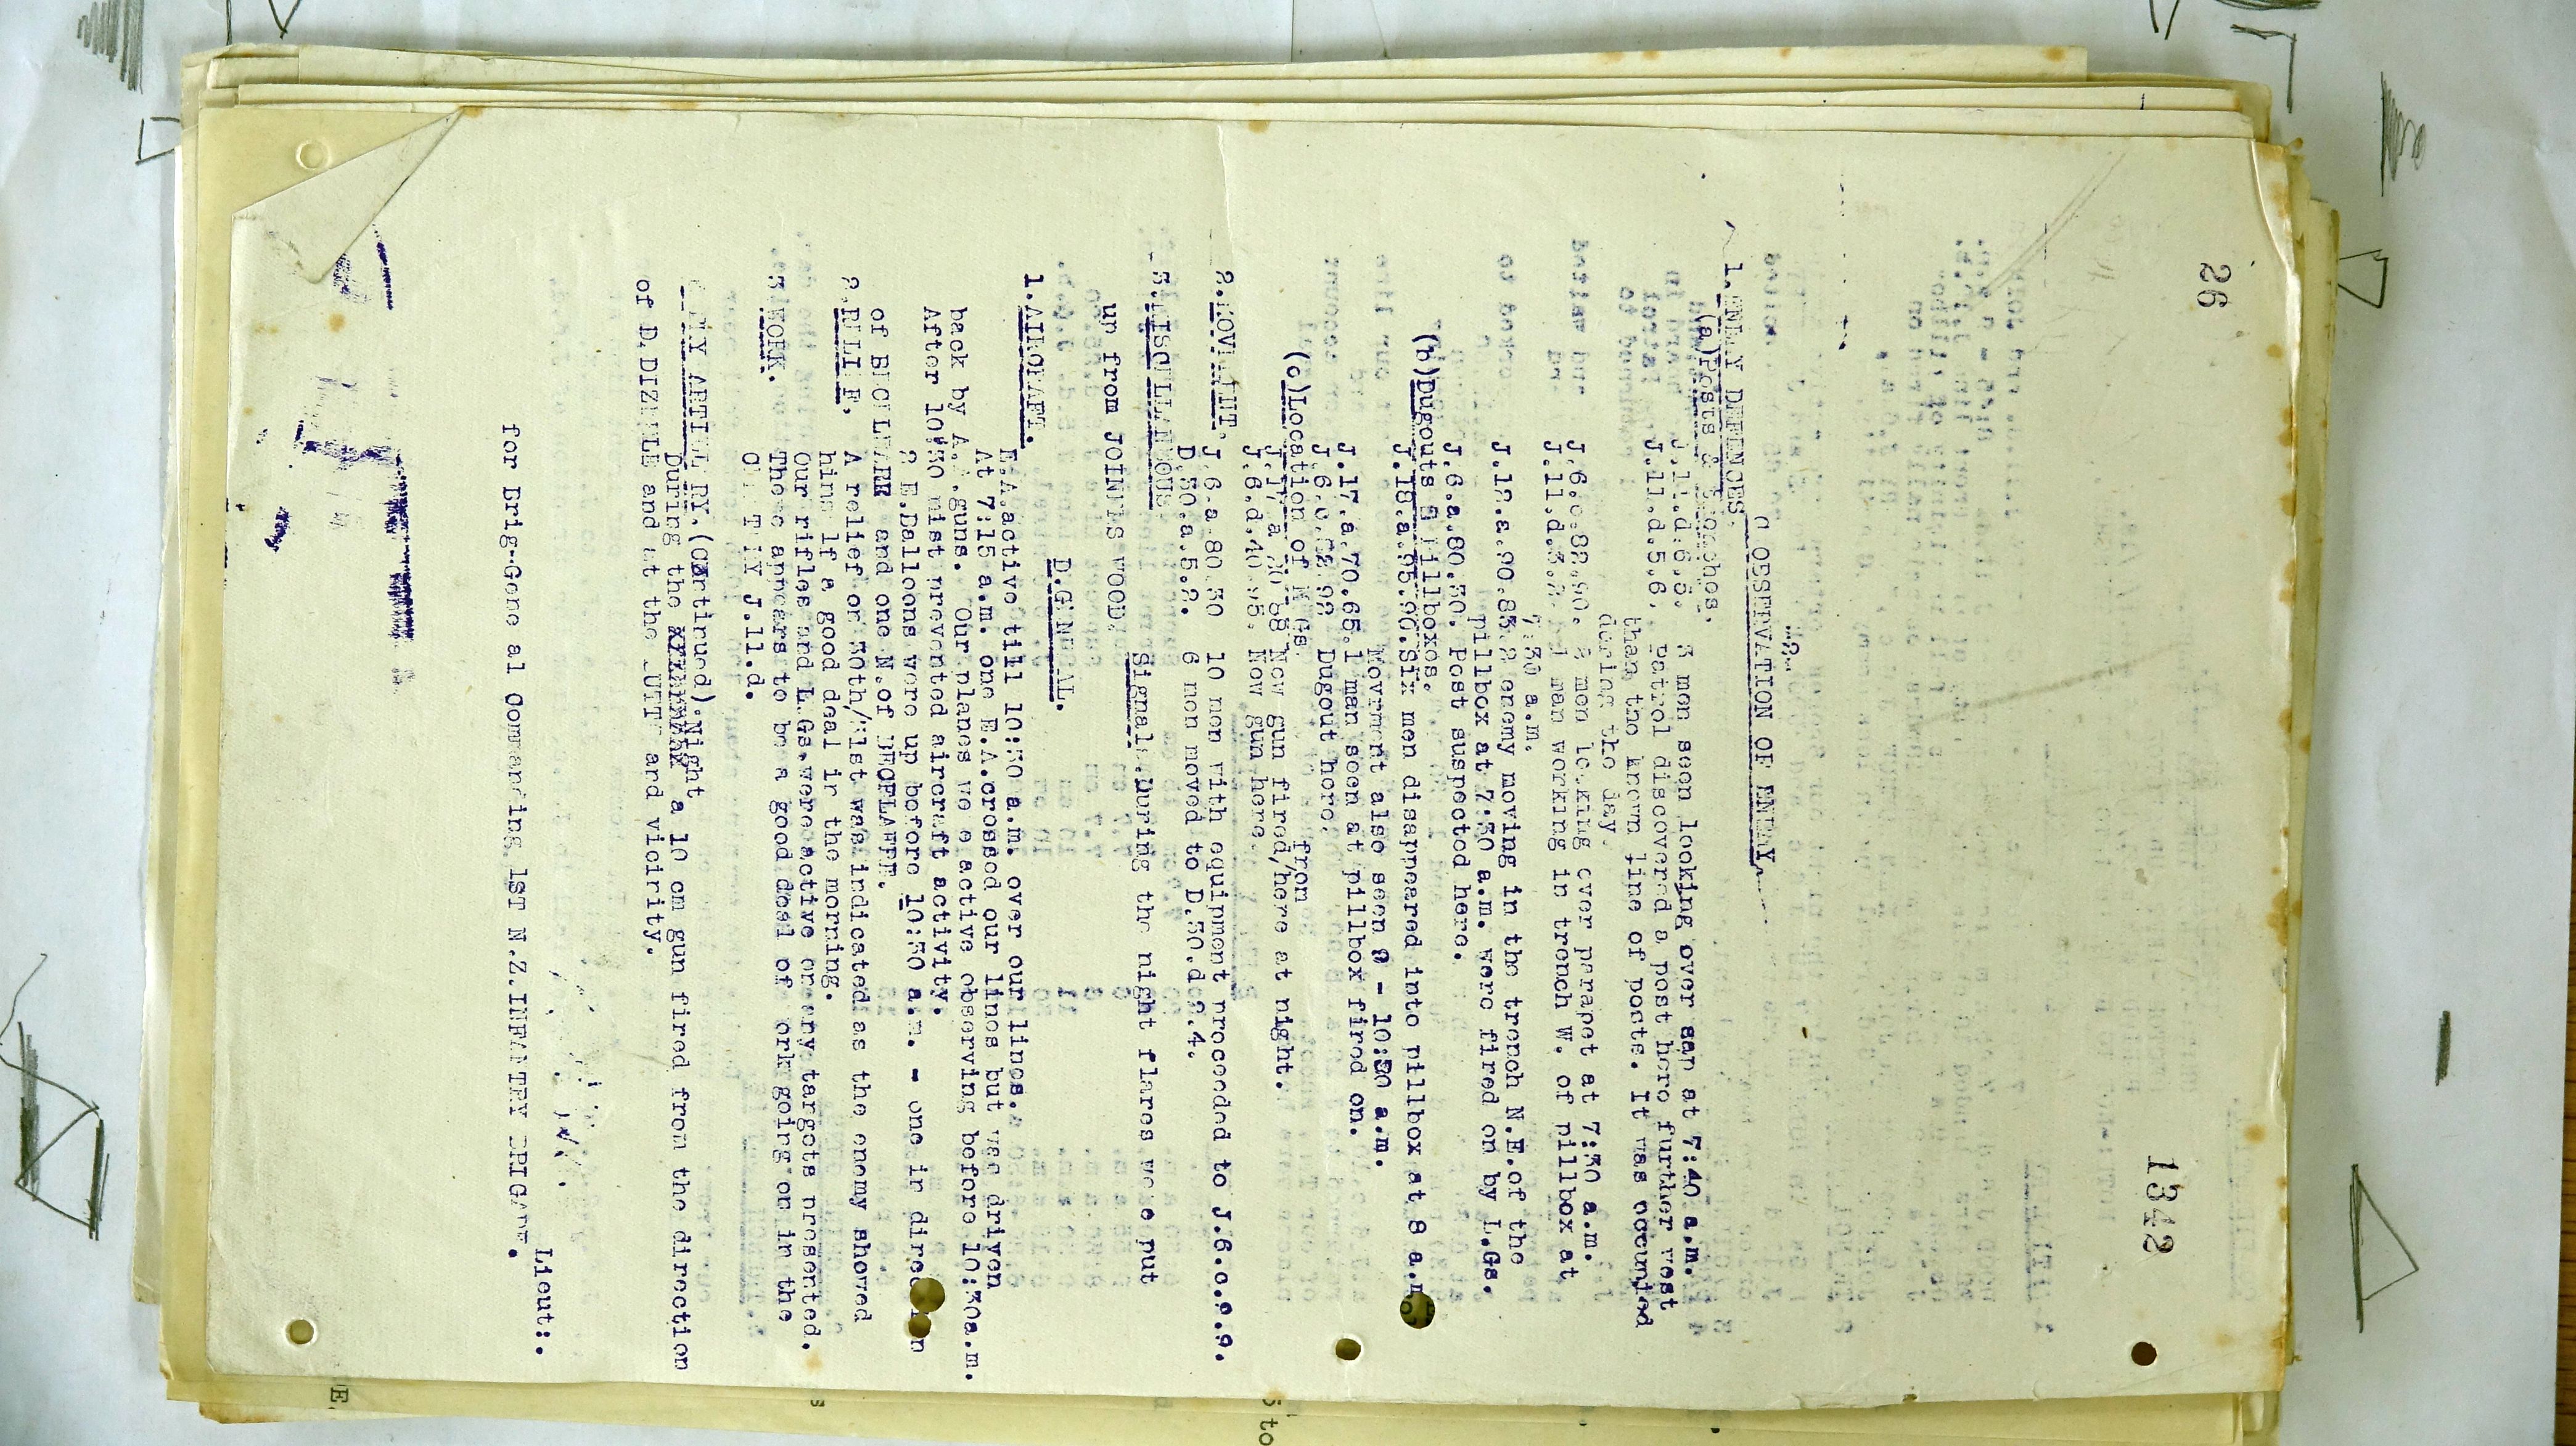 26
1342
-2-
C OBSERVATION OF ENEMY
1. ENEMY DEFENCES.
(a)Posts & Trenches.
J.11.d.6.5. 3 men seen looking over sap at 7:40 a.m.
J.11.d.5.6. Patrol discovered a post here further west
than the known line of posts. It was occupied
during the day.
J.6.c.82.90. 3 men looking over parapet at 7:30 a.m.
J.11.d.3.2. 1 man working in trench W. of pillbox at
7:30 a.m.
J.12.a.90.85. 2 enemy moving in the trench N.E.of the
pillbox at 7:30 a.m. were fired on by L.Gs.
J.6.a.80.30. Post suspected here.
(b)Dugouts & Pillboxes.
J.18.a.95.90.Six men disappeared into pillbox at 8 a.m
Movement also seen 9 - 10:30 a.m.
J.17.a.70.65.1 man seen at pillbox fired on.
J.6.c.98.92 Dugout here.
(c)Location of M Gs.
from
J.17.a 30.88 New gun fired/here at night.
J.6.d.40.95. New gun here.
2.MOVEMENT.
J.6.a.80.30 10 men with equipment proceeded to J.6.c.9.9.
D.30.a.5.2. 6 men moved to D.30.d.2.4.
3.MISCELLANEOUS.
Signals.During the night flares were put
up from JOINERS WOOD.
D.GENERAL.
1.AIRCRAFT.
E.A.active till 10:30 a.m. over our lines.
At 7:15 a.m. one E.A.crossed our lines but was driven
back by A.A.guns. Our planes we e active observing before 10:30a.m.
After 10:30 mist prevented aircraft activity.
2 E.Balloons were up before 10:30 a.m. - one in direc on
of BECELAERE and one N.of BECELAERE.
2.RELIEF. A relief on 30th/31st was indicated as the enemy showed
himself a good deal in the morning.
Our rifles and L.Gs.were active on any targets presented.
3 WORK. There appears to be a good deal of work going on in the
J.11.d.
ENEMY ARTILLERY.(Continued).Night
During the a 10 cm gun fired from the direction
of D.DIZEELE and at the BUTTE and vicinity.
Lieut:.
for Brig-Gene al Commanding 1ST N.Z.INFANTRY BRIGADE.